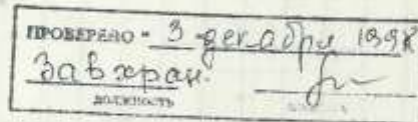 ПРОВЕРЕНО - 3 декабря 1998
Зав хран.
должность